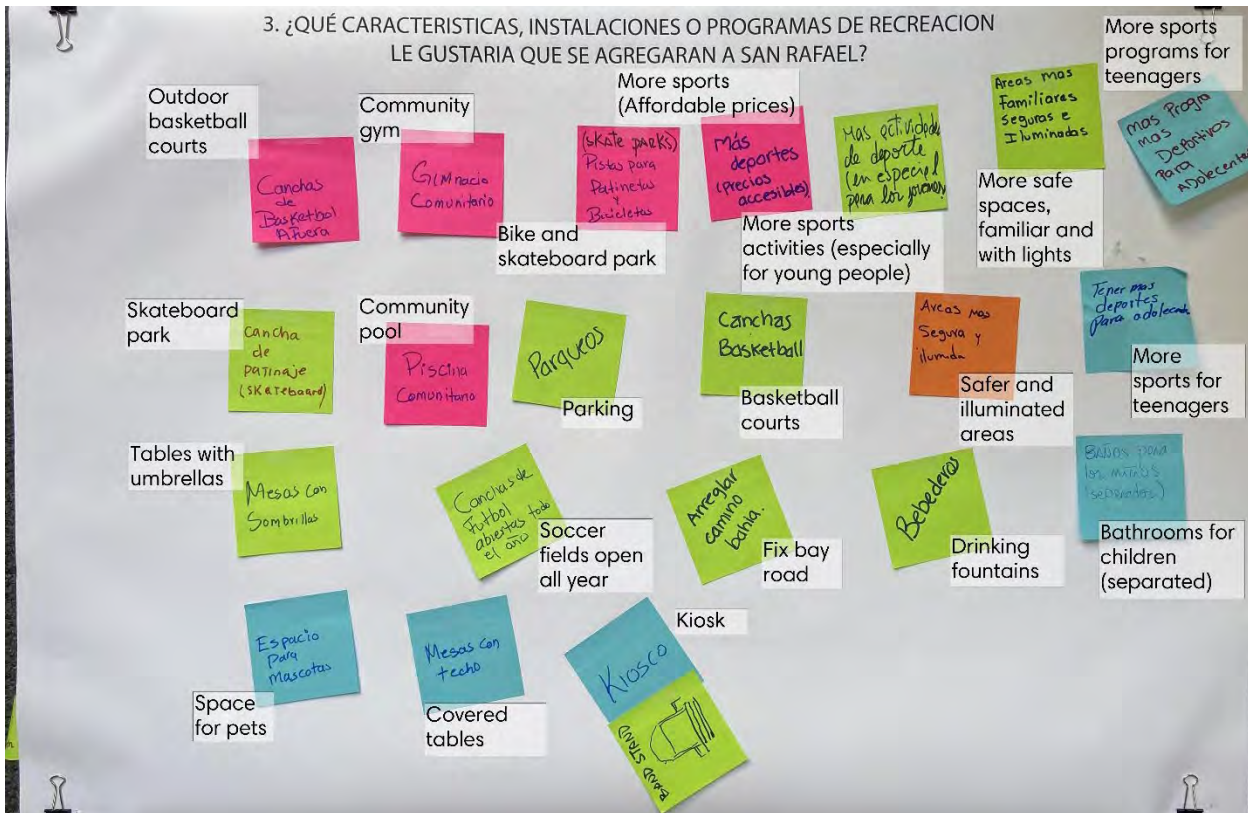 3. ¿QUÉ CARACTERISTICAS, INSTALACIONES O PROGRAMAS DE RECREACION
LE GUSTARIA QUE SE AGREGARAN A SAN RAFAEL?
Outdoor
basketball
courts
Canchas
de
Basketbol
Afuera
Community
gym
Gimnacio
Comunitario
(Skate parks)
Pistas para
Patinetas
y
Bicicletas
Bike and
skateboard park
More sports
(Affordable prices)
Más
deportes
(precios
accesibles)
Mas actividades
de deporte
(en especial
para los jovenes)
More sports
activities (especially
for young people)
Areas mas
Familiares
Seguras e
Iluminadas
More safe
spaces,
familiar and
with lights
More sports
programs for
teenagers
Mas Progra
mas
Deportivos
Para
Adolecentes
Skateboard
park
Cancha
de
patinaje
(skateboard)
Community
pool
Piscina
Comunitario
Parqueos
Parking
Canchas
Basketball
Basketball
courts
Areas mas
Segura y
ilumida
Safer and
illuminated
areas
Tener mas
deportes
para adolecente
More
sports for
teenagers
Tables with
umbrellas
Mesas con
Sombrillas
Canchas de
Futbol
abiertas todo
el año
Soccer
fields open
all year
Arreglar
camino
bahia.
Fix bay
road
Bebederos
Drinking
fountains
Baños para
los niños
(separados)
Bathrooms for
children
(separated)
Espacio
para
mascotas
Space
for pets
Mesas con
techo
Covered
tables
Kiosk
Kiosco
BAND STAND